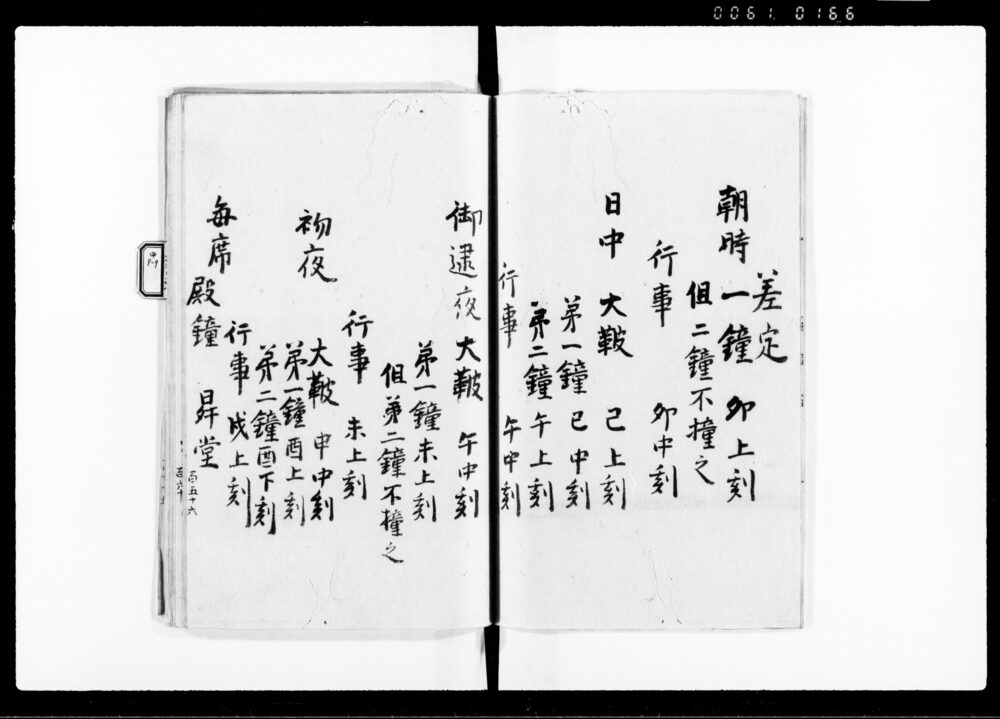 0061 0166
差定
朝時 一鐘 卯上刻
但二鐘不撞之
行事 卯中刻
日中 大鞁 己上刻
第一鐘 巳中刻
第二鐘 午上刻
行事 午中刻
御逮夜 大鞁 午中刻
第一鐘 未上刻
但第二鐘不撞之
行事 未上刻
初夜 大鞁 申中刻
第一鐘 酉上刻
第二鐘 酉下刻
行事 戌上刻
毎席 殿鐘 昇堂
百五十六